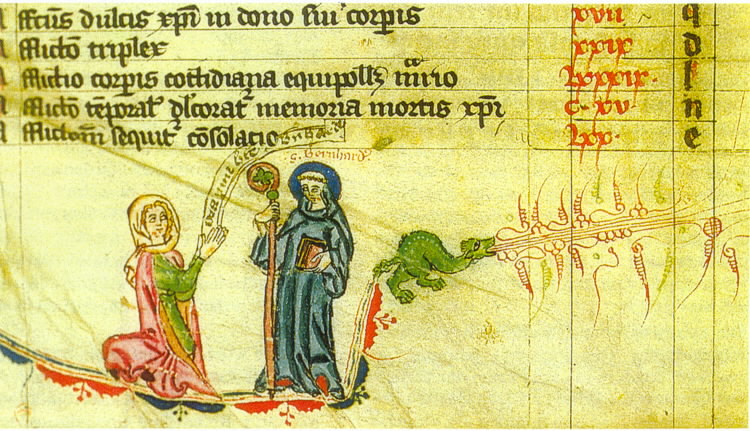 ffcūs dulcis xp̄i in dono sui corpis xvii q
fflictō triplex xxix d
fflictio corpis cottidiana equipoll3 m̄rio lxxxix· l
fflictō tēporaƚ dƚcoratᷣ memoria mortis xp̄i c·xv· n
fflictōm sequitᷣ cōsolacio lxx· e
S. Bernhardꝰ